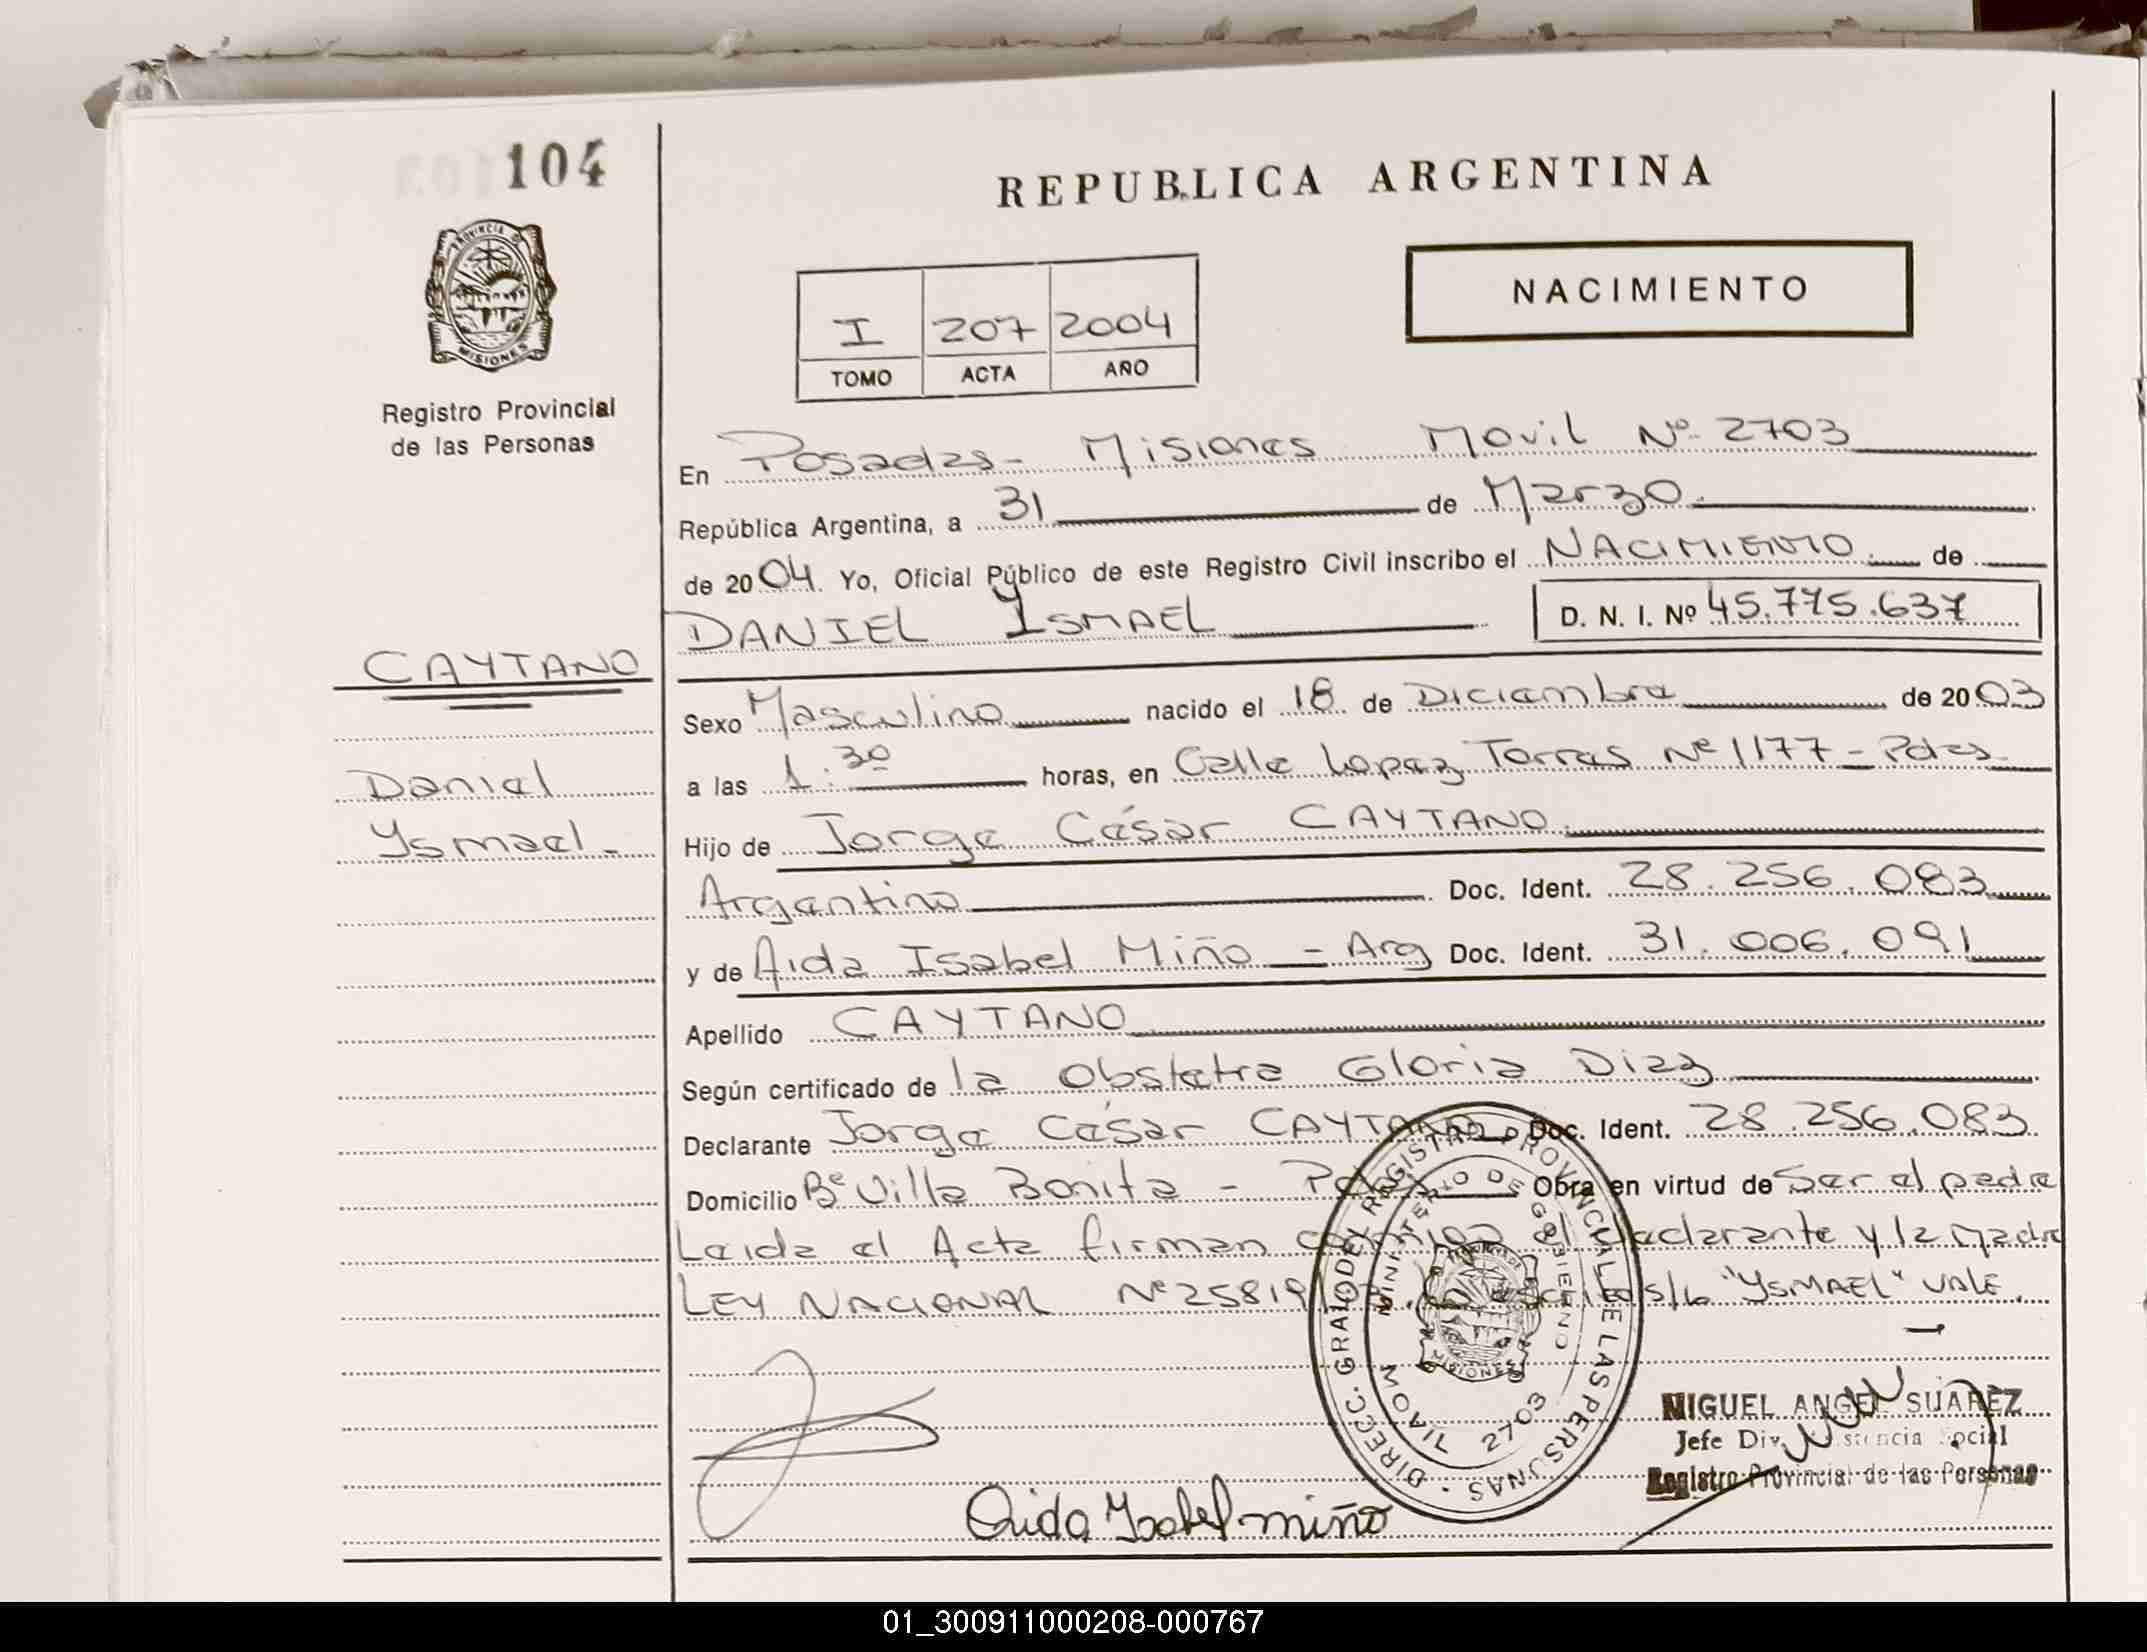 104
PROVINCIA DE
MISIONES
Registro Provincial
de las Personas
REPUBLICA ARGENTINA
NACIMIENTO
I 207 2004
TOMO ACTA AÑO
En Posadas - Misiones Movil Nº 2703
República Argentina, a 31 de Marzo
de 2004. Yo, Oficial Público de este Registro Civil inscribo el NACIMIENTO de
DANIEL YSMAEL D. N. I. Nº 45.775.637
CAYTANO
Daniel
Ysmael.
Sexo Masculino nacido el 18 de Diciembre de 2003
a las 1:30 horas, en Calle Lopez Torres Nº 1177 - Pdas
Hijo de Jorge César CAYTANO
Argentino Doc. Ident. 28.256.083
y de Aida Isabel Miño - Arg Doc. Ident. 31.006.091
Apellido CAYTANO
Según certificado de la Obstetra Gloria Diaz
Declarante Jorge César CAYTANO Doc. Ident. 28.256.083
Domicilio Bº Villa Bonita - Pdas Obra en virtud de Ser el padre
Leida el Acta firman conmigo el declarante y la Madre
LEY NACIONAL Nº 25819 s/b "YSMAEL" VALE.
DIRECC. GRAL DEL REGISTRO PROVINCIAL DE LAS PERSONAS
MINISTERIO DE GOBIERNO
MOVIL 2703
MISIONES
MIGUEL ANGEL SUAREZ
Jefe Div. Social
Registro Provincial de las Personas
Aida Ysabel miño
01_300911000208-000767